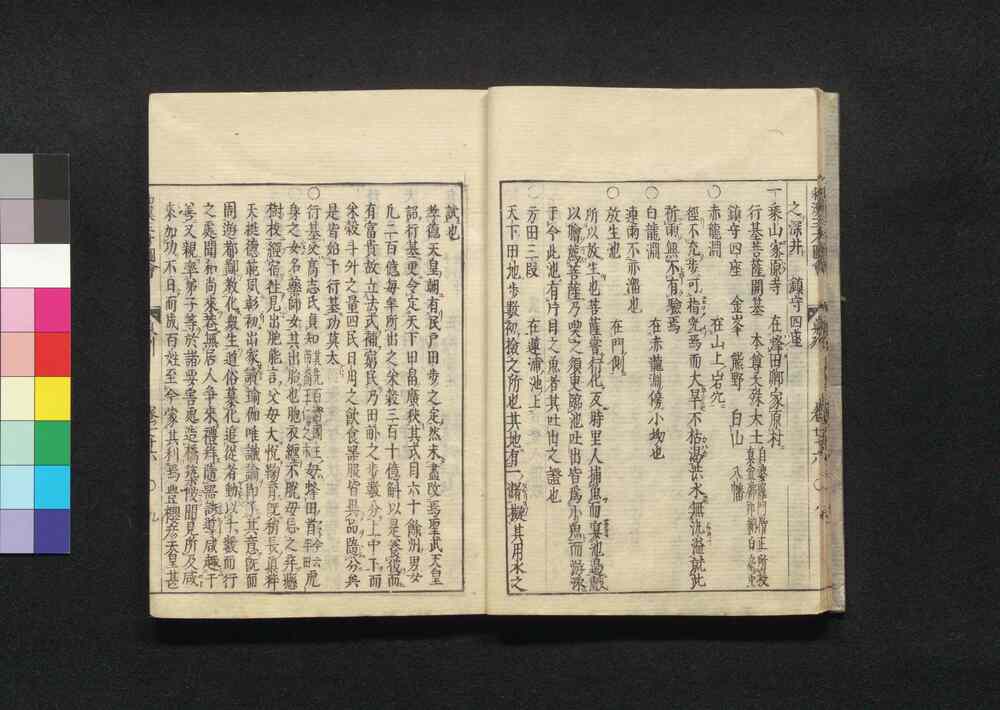 之深井　鎮守四座
一乗山家原寺　在蜂田郷家原村
行基菩薩開基　本尊文殊大士
鎮守四座　金峯　熊野　白山　八幡
〇赤龍淵　在山上岩穴
徑不充歩可指究焉而大旱不枯湛水無汎溢就此
祈雨無不有驗焉
〇白龍淵　在赤龍淵傍小坳也
連雨不亦溜也
〇放生池　在門側
所以放生也菩薩嘗行化反時里人捕魚而宴池爲
以膾薦菩薩乃喫之須臾臨池吐出皆爲小魚而游泳
于今此池有片目之魚者其吐出之證也
〇方田三段　在蓮浦池上
天下田地歩數初撿之所也其地有一擬其用水之
試也
孝德天皇朝有民戸田歩之定然未盡改焉聖武天皇
詔行基更令定天下田畠廣狹其式目六十餘州男女
凡二百億毎年所出之米穀三百十億斛以是養彼而
有富貴故立法式補窮民乃田畝之歩數分上中下而
米穀斗外之量四民日用之飲食器服皆與品階分矣
是皆始于行基功莫太
〇行基父高志氏貞知　母蜂田首
身之女名藥師女其出胎也胞衣纒不脱母忌之弃懸
樹枝經宿往見出胞能言父母大悦鞠育既稍長眞粹
天挺德範夙彰初出家讀瑜伽唯識論即了其意既而
周遊都鄙教化衆生道俗慕化追從者動以千數而行
之處聞和尚來巷無居人爭來禮拜隨器誘導咸趣于
善又親率弟子等於諸要害處造橋築陂聞見所及咸
來加功不日而成百姓至今蒙其利焉豊櫻彦天皇甚